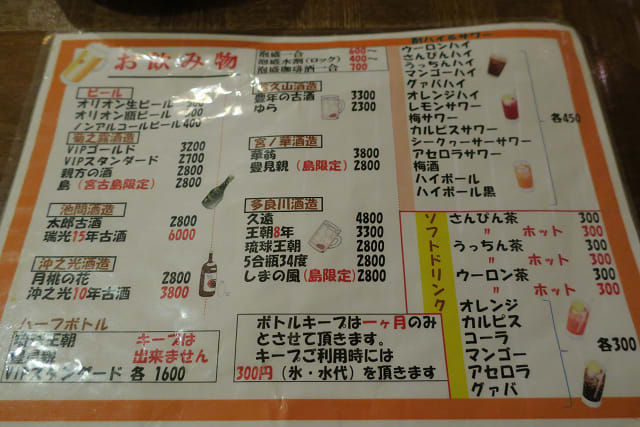 お飲み物
泡盛一合 600～
泡盛水割(ロック) 400～
泡盛珈琲酒一合 700
ビール
オリオン生ビール
オリオン瓶ビール
ノンアルコールビール 400
菊之露酒造
VIPゴールド 3200
VIPスタンダード 2700
親方の酒 2800
島(宮古島限定) 2800
池間酒造
太郎古酒 2800
瑞光15年古酒 6000
沖之光酒造
月桃の花 2800
沖之光10年古酒 3800
ハーフボトル
王朝 キープは
出来ません
VIPスタンダード 各 1600
久山酒造
豊年の古酒 3300
ゆら 2300
宮ノ華酒造
華翁 3800
豊見親(島限定) 2800
多良川酒造
久遠 4800
王朝8年 3300
琉球王朝 2800
5合瓶34度 2800
しまの風(島限定) 2800
ボトルキープは一ヶ月のみ
とさせて頂きます。
キープご利用時には
300円(氷・水代)を頂きます
酎ハイ&サワー
ウーロンハイ
さんぴんハイ
うっちんハイ
マンゴーハイ
グァバハイ
オレンジハイ
レモンサワー
梅サワー
カルピスサワー
シークヮーサーサワー
アセロラサワー
梅酒
ハイボール
ハイボール黒
各450
ソフトドリンク
さんぴん茶 300
〃 ホット 300
うっちん茶 300
〃 ホット 300
ウーロン茶 300
〃 ホット 300
オレンジ
カルピス
コーラ
マンゴー
アセロラ
グァバ
各300